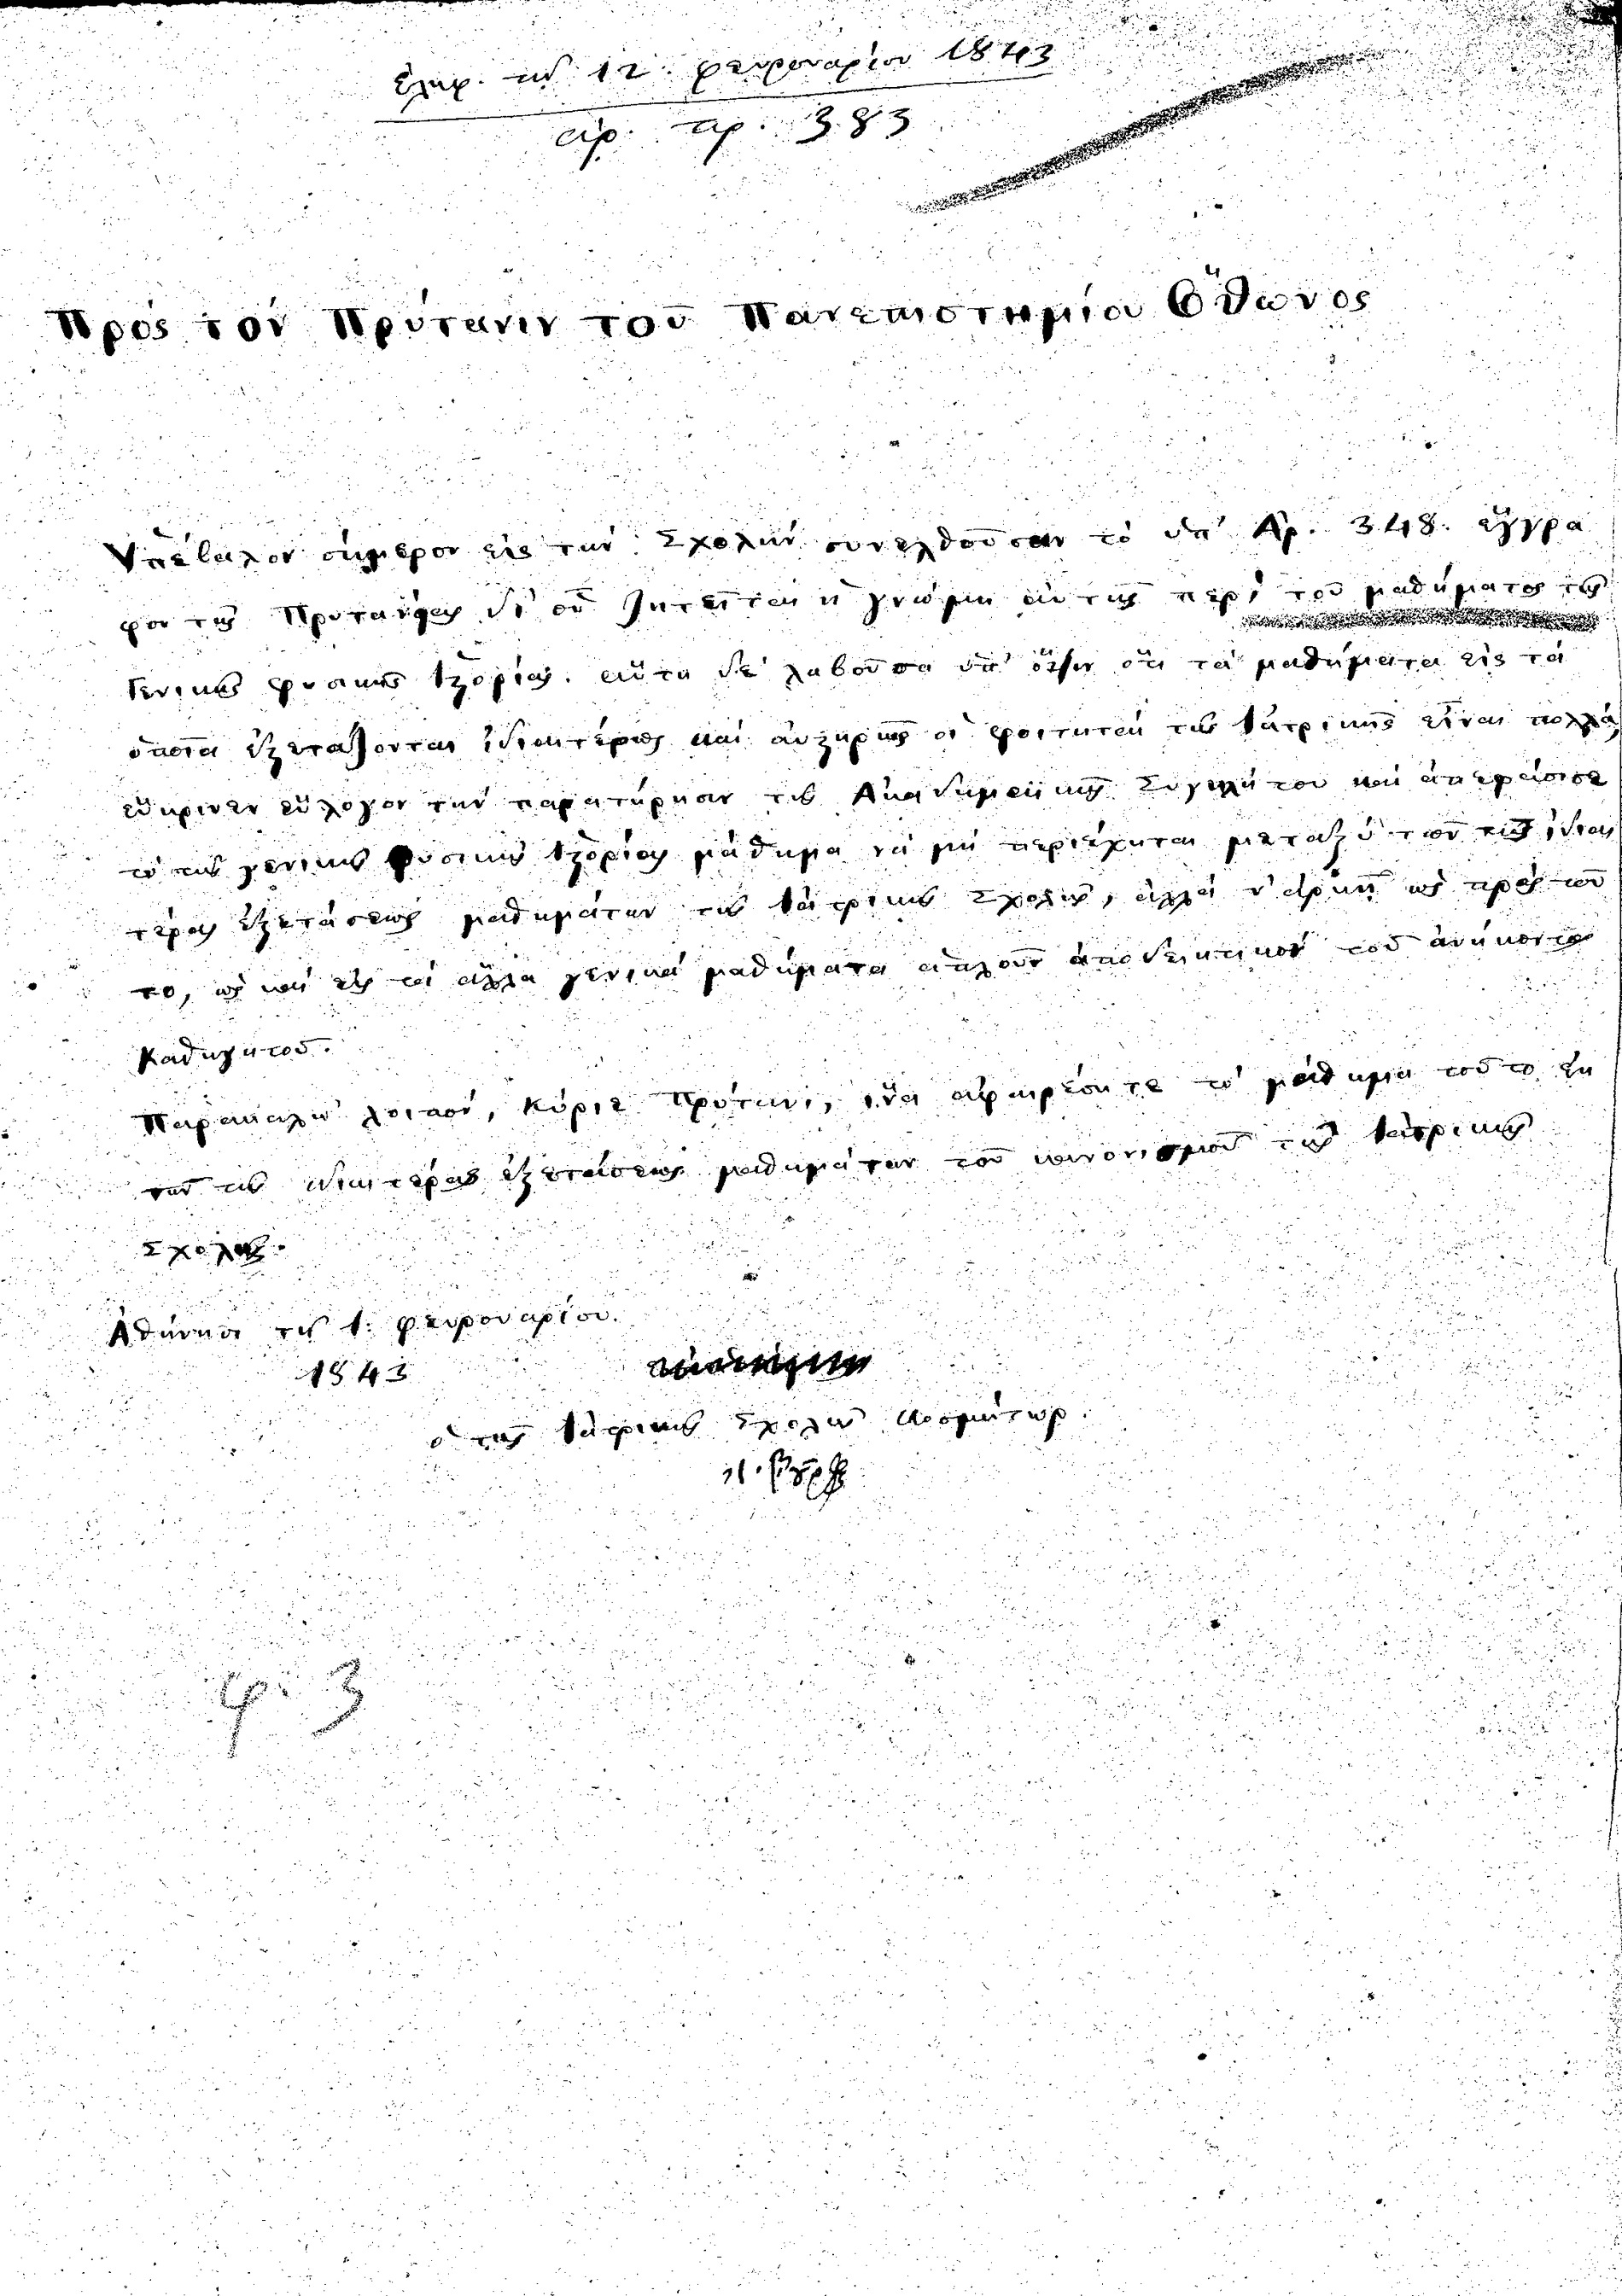 ἐλήφ. τῇ 12. φευρουαρίου 1843
ἀρ. πρ. 383
Πρὸς τὸν Πρύτανιν τοῦ Πανεπιστημίου Ὄθωνος
Ὑπέβαλον σήμερον εἰς τὴν Σχολὴν συνελθοῦσαν τὸ ὑπ' Ἀρ. 348. ἔγγρα
φον τῆς Πρυτανείας δι' οὗ ζητεῖται ἡ γνώμη αὐτῆς περὶ τοῦ μαθήματος τῆς
Γενικῆς φυσικῆς ἱστορίας. αὕτη δὲ λαβοῦσα ὑπ' ὄψιν ὅτι τὰ μαθήματα εἰς τὰ
ὁποῖα ἐξετάζονται ἰδιαιτέρως καὶ αὐστηρῶς οἱ φοιτηταὶ τῆς ἰατρικῆς εἶναι πολλὰ,
εὔκρινεν εὔλογον τὴν παρατήρησιν τῆς Ἀκαδημαϊκῆς Συγκλήτου καὶ ἀπεφάσισε
τὸ τῆς γενικῆς φυσικῆς ἱστορίας μάθημα νὰ μὴ περιέχηται μεταξὺ τῶν τῆς ἰδιαι
τέρας ἐξετάσεως μαθημάτων τῆς ἰατρικῆς Σχολῆς, ἀλλὰ ν' ἀρκῇ ὡς πρὸς τοῦ
το, ὡς καὶ εἰς τὰ ἄλλα γενικὰ μαθήματα ἁπλοῦν ἀποδεικτικὸν τοῦ ἀνήκοντος
Καθηγητοῦ.
Παρακαλῶ λοιπὸν, Κύριε Πρύτανι, ἵνα ἀφαιρέσητε τὸ μάθημα τοῦτο ἐκ
τῶν τῆς ἰδιαιτέρας ἐξετάσεως μαθημάτων τοῦ κανονισμοῦ τῆς ἰατρικῆς
Σχολῆς.
Ἀθήνησι τῇ 1. φευρουαρίου.
1843
ὁ τῆς ἰατρικῆς Σχολῆς Κοσμήτωρ.
φ. 3